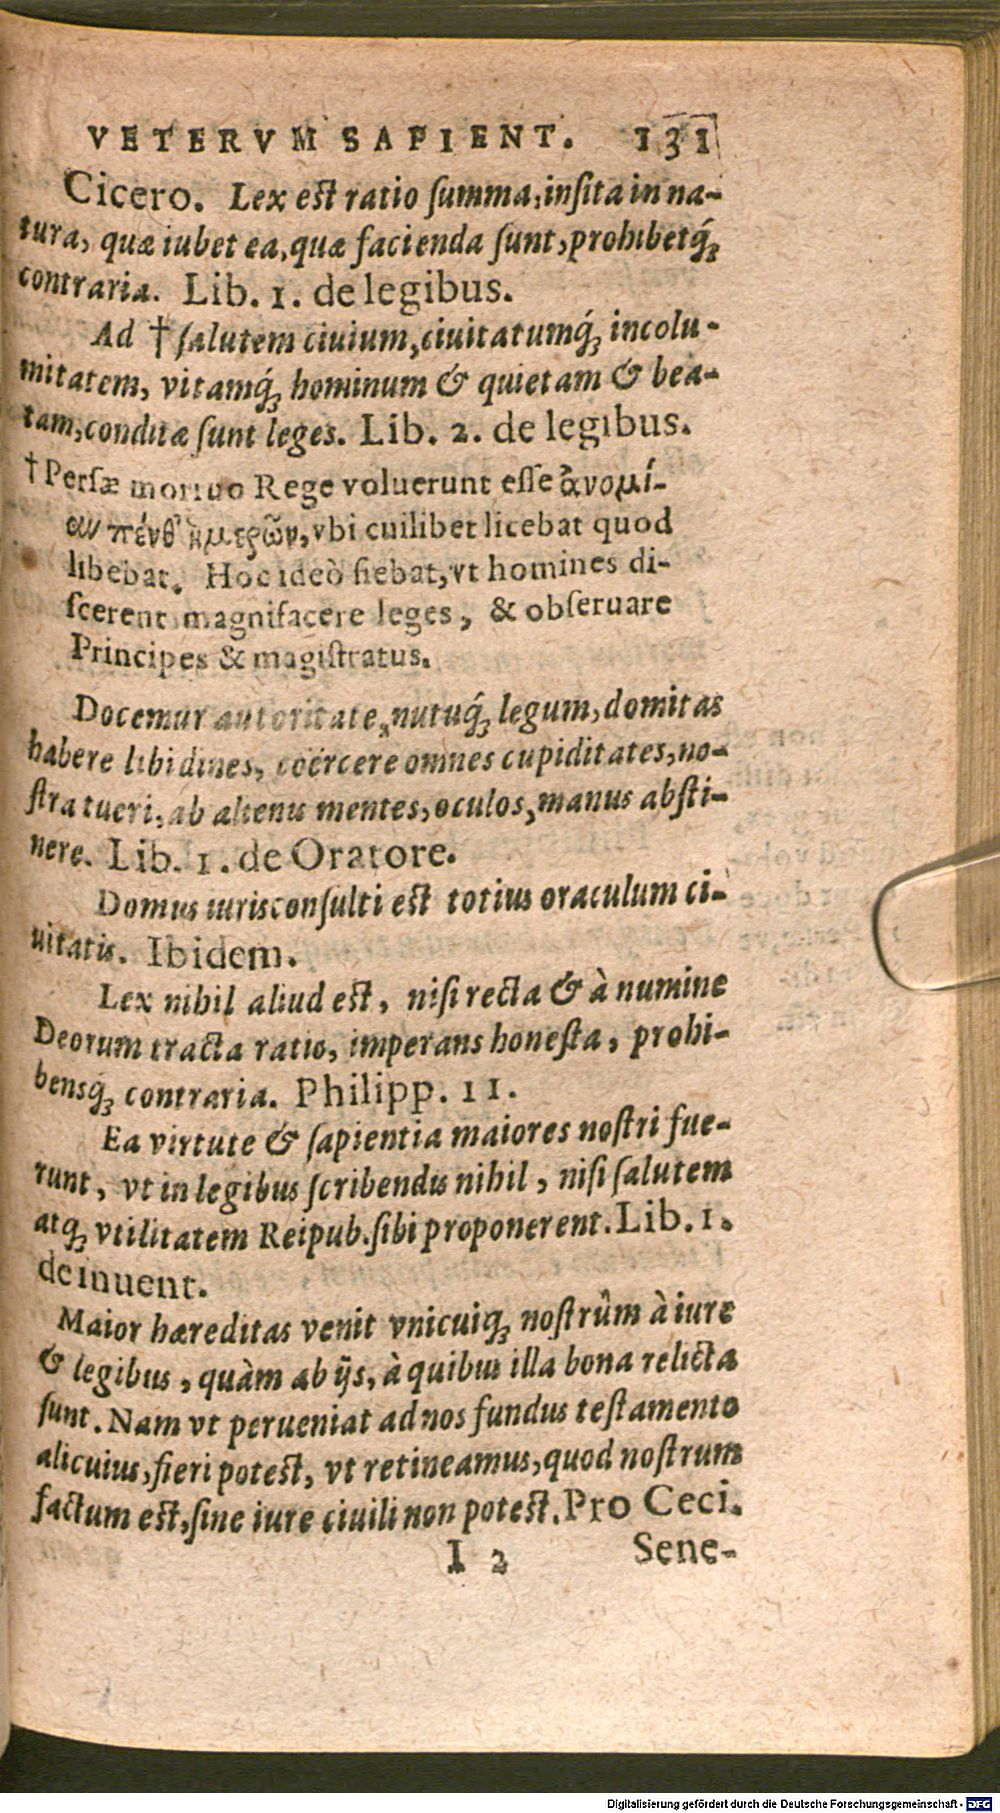 VETERVM SAPIENT. 131
Cicero. Lex est ratio ſumma, inſita in na-
tura, quæ iubet ea, quæ facienda ſunt, prohibetq́;
contraria. Lib. 1. de legibus.
Ad † ſalutem ciuium, ciuitatumq́; incolu-
mitatem, vitamq́; hominum & quietam & bea-
tam, conditæ ſunt leges. Lib. 2. de legibus.
† Perſæ mortuo Rege voluerunt eſſe ἀνομί-
αν πένθ' ἡμερῶν, vbi cuilibet licebat quod
libebat. Hoc ideò fiebat, vt homines di-
ſcerent magnifacere leges, & obſeruare
Principes & magiſtratus.
Docemur autoritate, nutuq́; legum, domitas
habere libidines, coërcere omnes cupiditates, no-
ſtra tueri, ab alienis mentes, oculos, manus abſti-
nere. Lib. 1. de Oratore.
Domus iurisconſulti est totius oraculum ci-
uitatis. Ibidem.
Lex nihil aliud est, niſi recta & à numine
Deorum tracta ratio, imperans honeſta, prohi-
bensq́; contraria. Philipp. 11.
Ea virtute & ſapientia maiores noſtri fue-
runt, vt in legibus ſcribendis nihil, niſi ſalutem
atq; vtilitatem Reipub. ſibi proponerent. Lib. 1.
de inuent.
Maior hæreditas venit vnicuiq; noſtrûm à iure
& legibus, quàm ab ijs, à quibus illa bona relicta
ſunt. Nam vt perueniat ad nos fundus teſtamento
alicuius, fieri potest, vt retineamus, quod noſtrum
factum est, ſine iure ciuili non potest. Pro Ceci.
I 2 Sene-
Digitalisierung gefördert durch die Deutsche Forschungsgemeinschaft - DFG